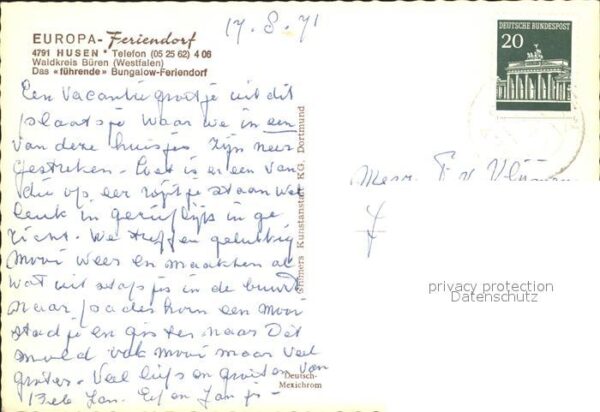 17.8.71
EUROPA-Feriendorf
4791 HUSEN • Telefon (05 25 62) 4 06
Waldkreis Büren (Westfalen)
Das «führende» Bungalow-Feriendorf
DEUTSCHE BUNDESPOST
20
Een vacantie groetje uit dit
plaatsje waar we in een
van deze huisjes zijn neer
gestreken. is er een van
die op een rijtje staan
leuk en geriefelijk in
We treffen gelukkig
mooi weer en maakten al
wat uitstapjes in de buurt
naar Paderborn een mooi
stadje en gisteren naar Det
mold ook mooi maar veel
groter. Veel liefs en groeten van
Jan.
Mevr.
Grimers Kunstanstalt KG. Dortmund
Deutsch-
Mexichrom
privacy protection
Datenschutz